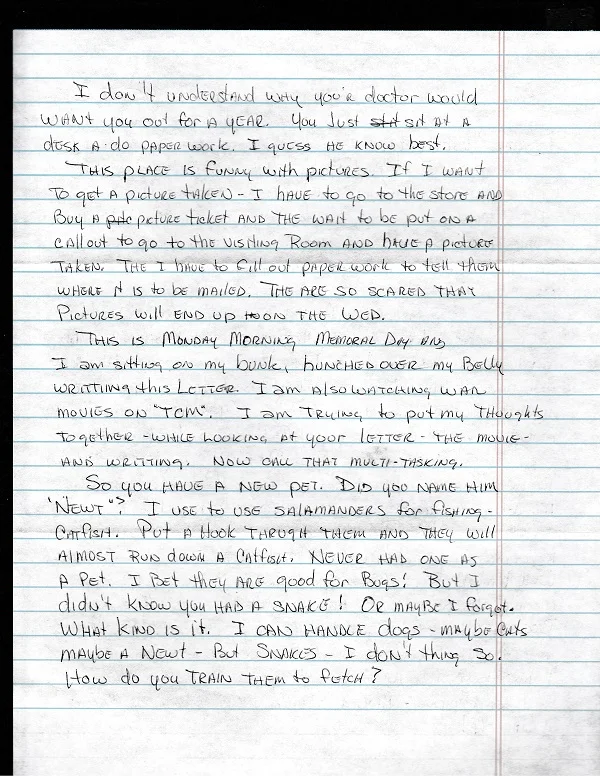 I don't understand why you'r doctor would
want you out for a year. You just sit at a
desk a do paper work. I guess he know best.
This place is funny with pictures. If I want
to get a picture taken - I have to go to the store and
buy a picture ticket and the wait to be put on a
callout to go to the visiting room and have a picture
taken. The I have to fill out paper work to tell them
where it is to be mailed. The are so scared that
pictures will end up on the wed.
This is Monday morning Memoral Day and
I am sitting on my bunk, hunched over my belly
writting this letter. I am also watching war
movies on "TCM". I am trying to put my thoughts
together - while looking at your letter - the movie -
and writting. Now call that multi-tasking.
So you have a new pet. Did you name him
"Newt"? I use to use salamanders for fishing -
catfish. Put a hook thrugh them and they will
almost run down a catfish. Never had one as
a pet. I bet they are good for bugs! But I
didn't know you had a snake! Or maybe I forgot.
What kind is it. I can handle dogs - maybe cats
maybe a newt - but snakes - I don't thing so.
How do you train them to fetch?